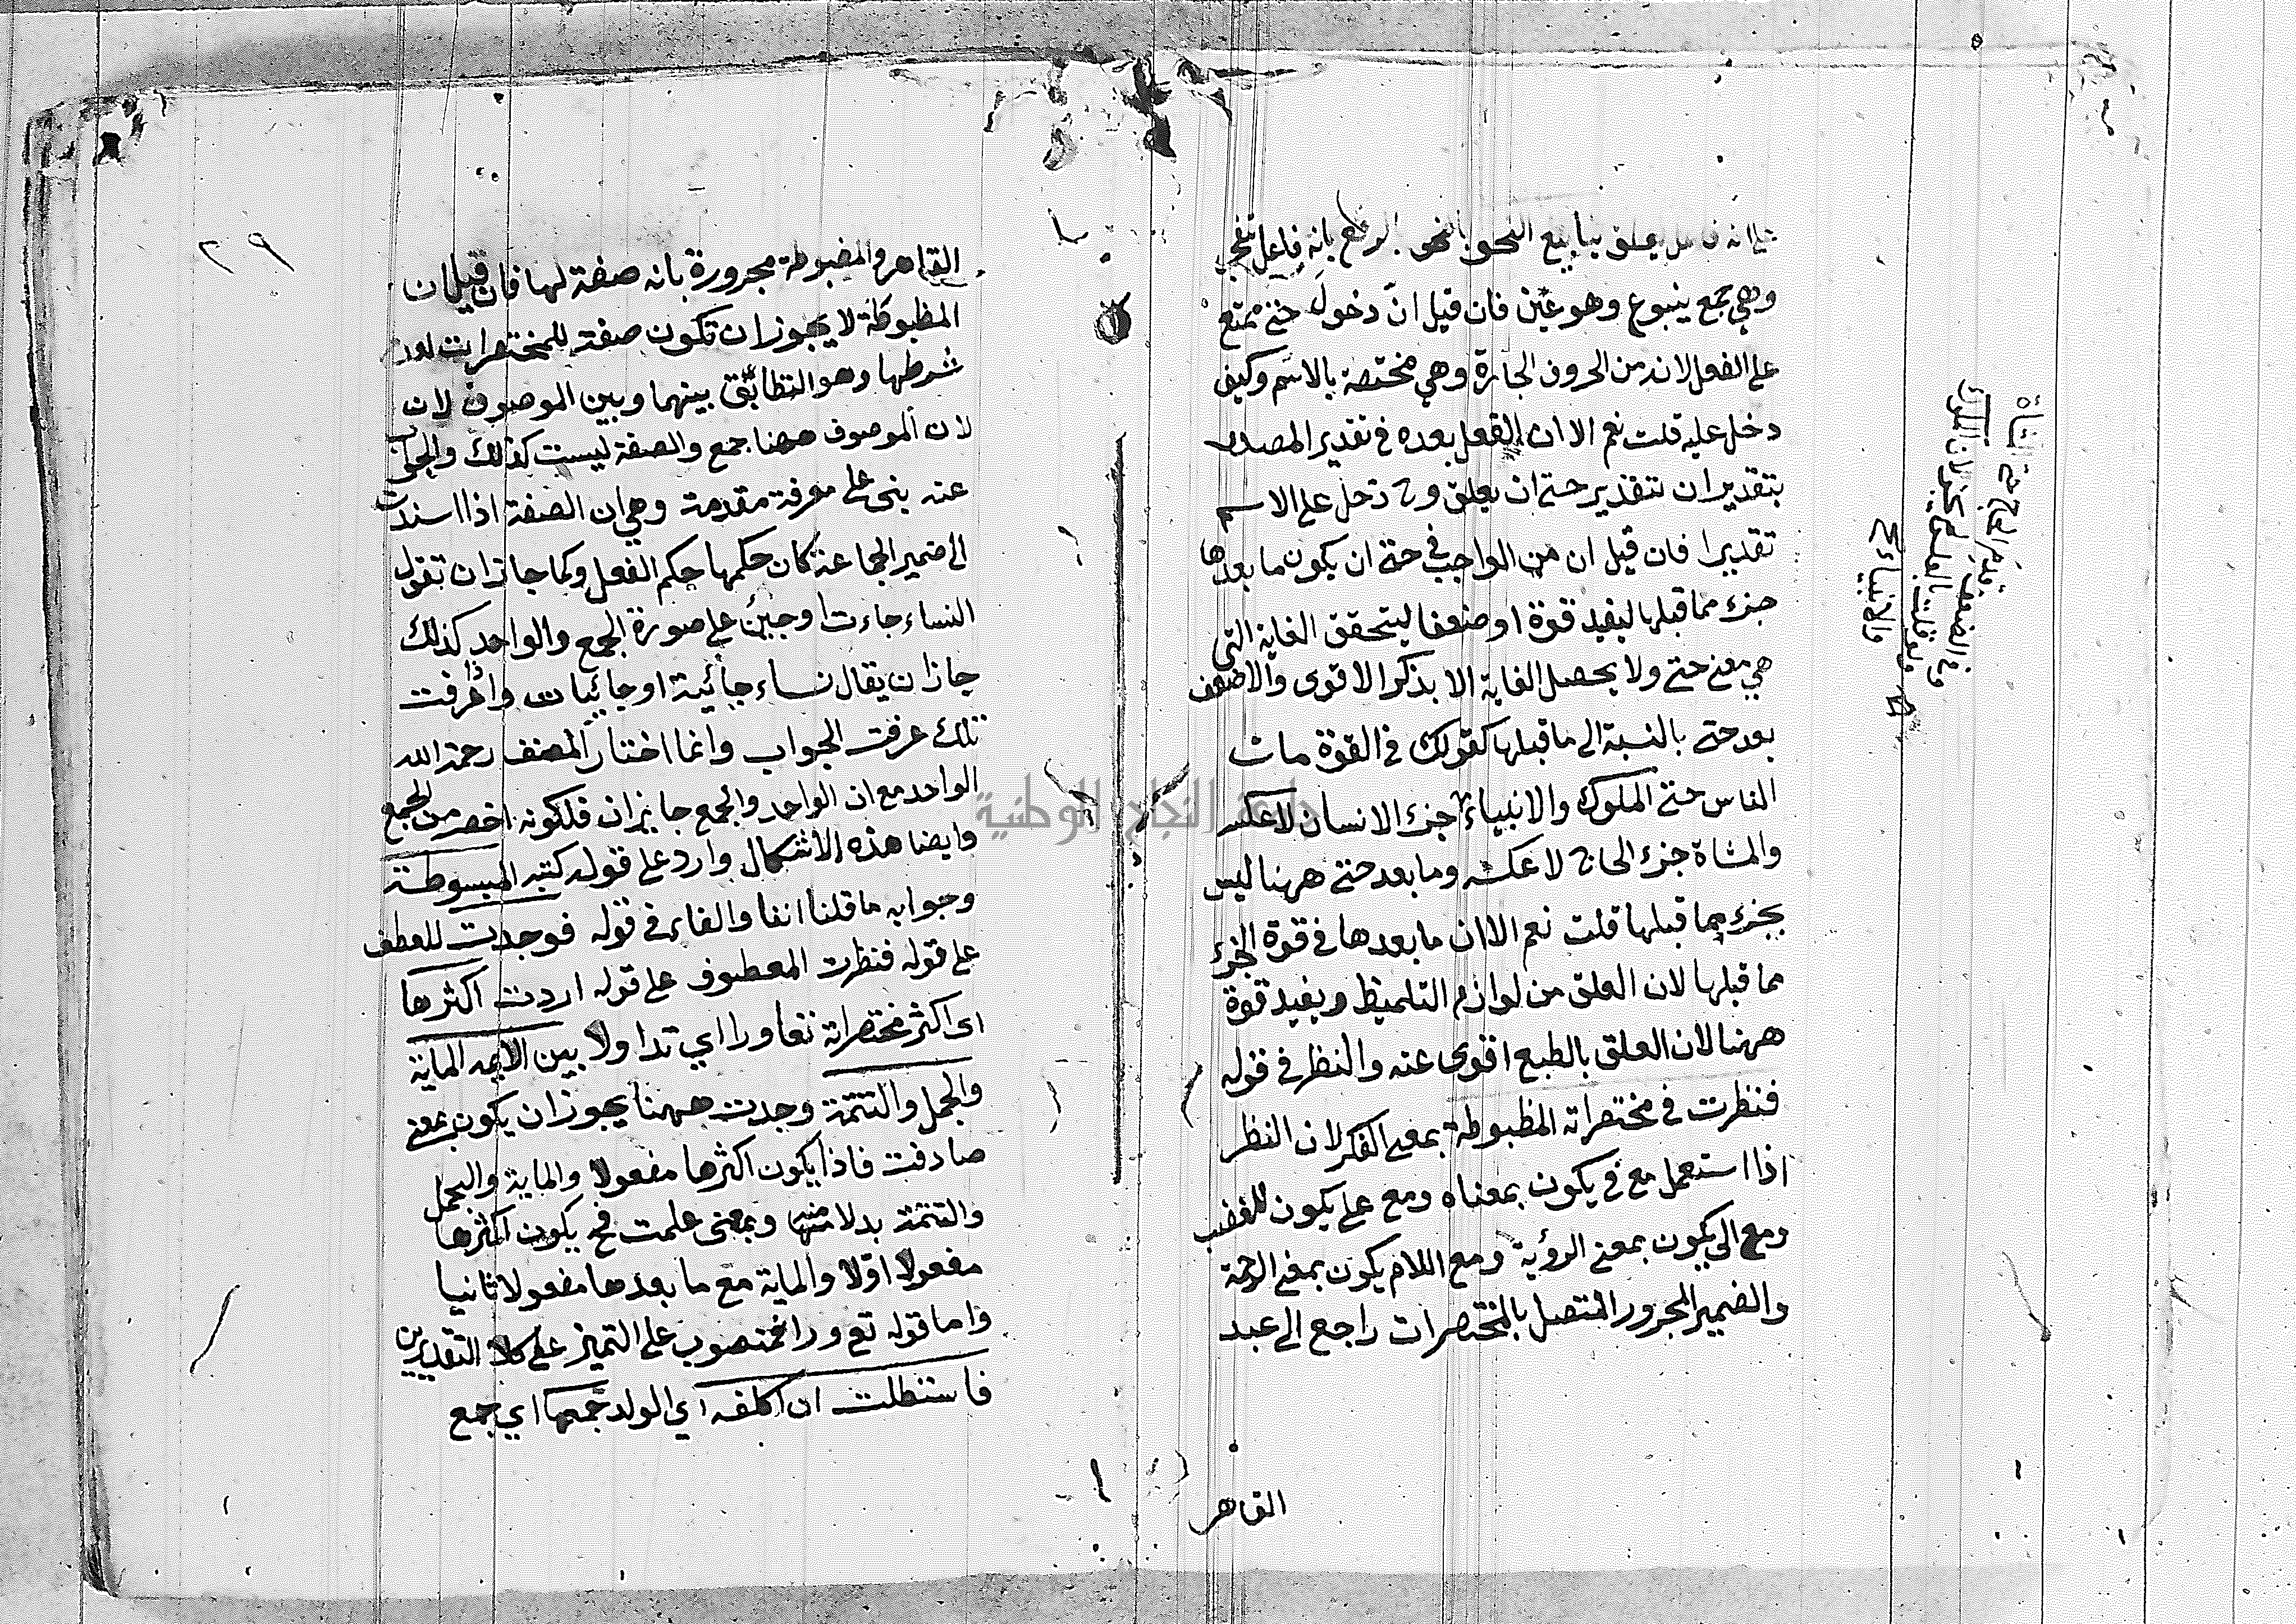 على انه فاعل يعلق ينابيع النحو بالنحو بالرفع بانه فاعل تنفجر
وهي جمع ينبوع وهو عين فان قيل ان دخول حتى ممتنع
على الفعل لانه من الحروف الجارة وهي مختصة بالاسم وكيف
دخل عليه قلت نعم الا ان الفعل بعده في تقدير المصدر
بتقدير ان تتقدير حتى ان يعلق وح دخل على الاسم
تقديرا فان قيل ان من الواجب في حتى ان يكون ما بعدها
جزء مما قبلها ليفيد قوة او ضعفا ليتحقق الغاية التي
هي معنى حتى ولا يحصل الغاية الا بذكر الاقوى والاضعف
بعد حتى بالنسبة الى ما قبلها كقولك في القوة مات
الناس حتى الملوك والانبياء جزء الانسان لا عكسه
والمشاة جزء الحاج لا عكسه وما بعد حتى ههنا ليس
بجزء مما قبلها قلت نعم الا ان ما بعدها في قوة الجزء
مما قبلها لان العلق من لوازم التلميظ ويفيد قوة
ههنا لان العلق بالطبع اقوى عنه والنظر في قوله
فنظرت في مختصراته المظبوطة بمعنى الفكر لان النظر
اذا استعمل مع في يكون بمعناه ومع على يكون للغضب
ومع الى يكون بمعنى الرؤية ومع اللام يكون بمعنى الرحمة
والضمير المجرور المتصل بالمختصرات راجع الى عبد
القاهر
وفي الضعف قدم الحاج حتى المشاة
ولو قلت البلغ يجوز لان الملوك
والانبياء ح
٢٩
القاهر والمضبوطة مجرورة بانه صفة لها فان قيل ان
المظبوطة لا يجوز ان تكون صفة للمختصرات لعدم
شرطها وهو التطابق بينهما وبين الموصوف لان
لان الموصوف ههنا جمع والصفة ليست كذلك والجواب
عنه بنى على معرفة مقدمة وهي ان الصفة اذا اسندت
الى ضمير الجماعة كان حكمها حكم الفعل وكما جاز ان تقول
النساء جاءت او جئن على صورة الجمع والواحد كذلك
جاز ان يقال نساء جائية او جائيات واذا عرفت
تلك عرفت الجواب وانما اختار المصنف رحمة الله
الواحد مع ان الواحد والجمع جايزان فلكونه اخصر من الجمع
وايضا هذه الاشكال وارد على قوله كتبه المبسوطة
وجوابه ما قلنا انفا والفاء في قوله فوجدت للعطف
على قوله فنظرت المعطوف على قوله اردت اكثرها
اى اكثر مختصراته تعاورا اي تداولا بين الايمه الماية
والجمل والتتمة وجدت ههنا يجوز ان يكون بمعنى
صادفت فاذا يكون اكثرها مفعولا والماية والجمل
والتتمة بدلا منها وبمعنى علمت فح يكون اكثرها
مفعولا اولا والماية مع ما بعدها مفعولا ثانيا
واما قوله تعورا فمنصوب على التميز على كلا التقديرين
فاستطلت ان اكلفه اي الولد جمعها اي جمع
جامعة النجاح الوطنية